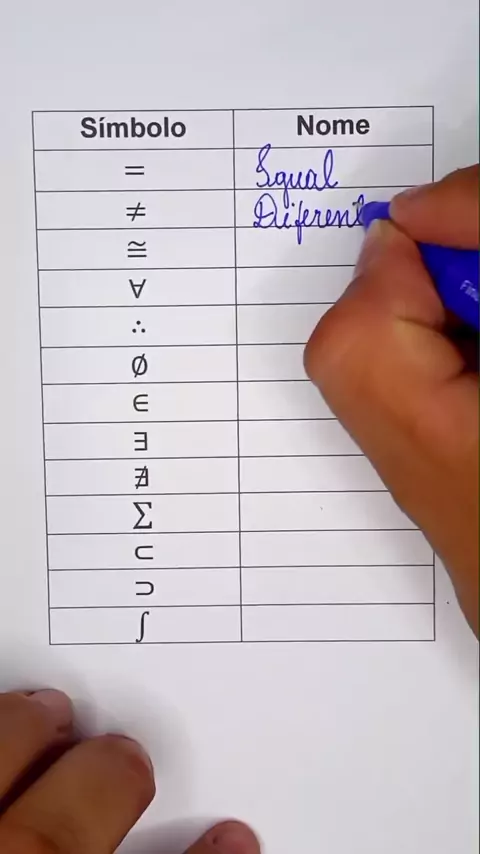 Símbolo Nome
= Igual
≠ Diferent
≅
∀
∴
∅
∈
∃
∄
∑
⊂
⊃
∫